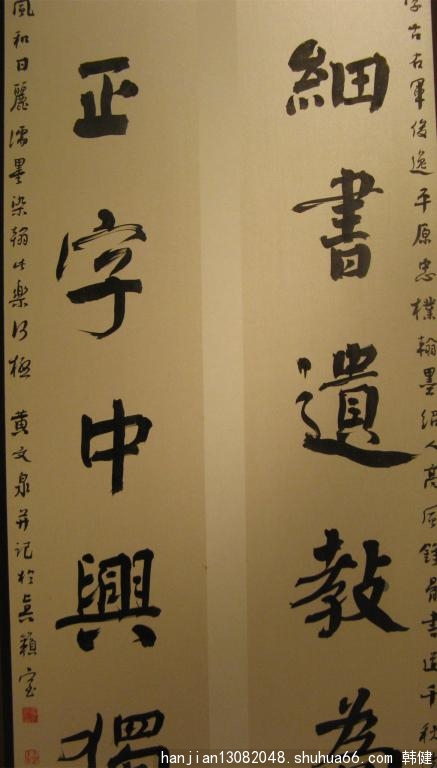 古右軍俊逸平原忠樸翰墨
細書遺教為
正字中興獨
風和日麗濡墨染翰此樂何極 黃文泉并記於真賴室
hanjian13082048.shuhua66.com 韩健